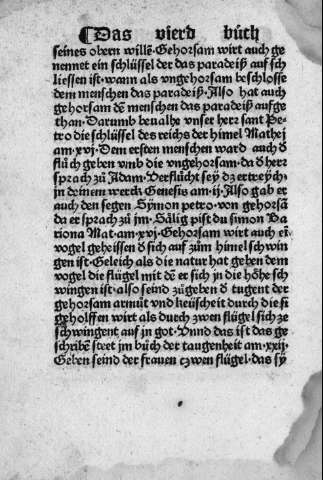 ¶Das vierd bůch
seines obern willē. Gehorsam wirt auch ge
nennet ein schlüssel der das paradeiß auf sch
liessen ist. wann als vngehorsam beschlosse
dem menschen das paradeiß. Also hat auch
gehorsam dē menschen das paradeiß aufge
than. Darumb beualhe vnser herr sant Pe
tro die schlüssel des reichs der himel Mathei
am. xvj. Dem ersten menschen ward auch d̄
flůch geben vmb die vngehorsam. da d̄ herr
sprach zů Adam. Verflůcht sey dz ertreych.
jn deinem werck Genesis am. ij. Also gab er
auch den segen Symon petro. von gehorsā
da er sprach zů jm. Sälig pist du simon Ba
riona Mat. am. xvj. Gehorsam wirt auch eī
vogel geheissen d̄ sich auf zům himel schwin
gen ist. Geleich als die natur hat geben dem
vogel die flügel mit dē er sich jn die höhe sch
wingen ist. also seind zůgeben d̄ tugent der
gehorsam armůt vnd keüscheit durch die si
geholffen wirt als durch zwen flügel sich ze
schwingent auf jn got. Vnnd das ist das ge
schribē steet jm bůch der taugenheit am. xxij.
Geben seind der frauen czwen flügel. das sy